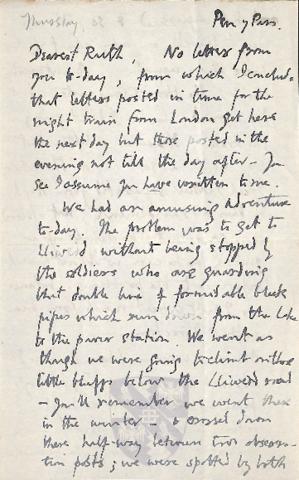 Pen y Pass.
Dearest Ruth, No letter from
you to-day, from which I conclude
that letters posted in time for the
night train from London get here
the next day but those posted in the
evening not till the day after – You
see I assume you have written to me.
We had an amusing adventure
to-day. The problem was to get to
Lliwedd without being stopped by
the soldiers who are guarding
that double line of formidable black
pipes which run down from the Lake
to the power station. We went as
though we were going to climb on those
little bluffs below the Lliwedd road
– you'll remember we went there
in the winter – & crossed down
there half-way between two observa-
tion posts; we were spotted by both